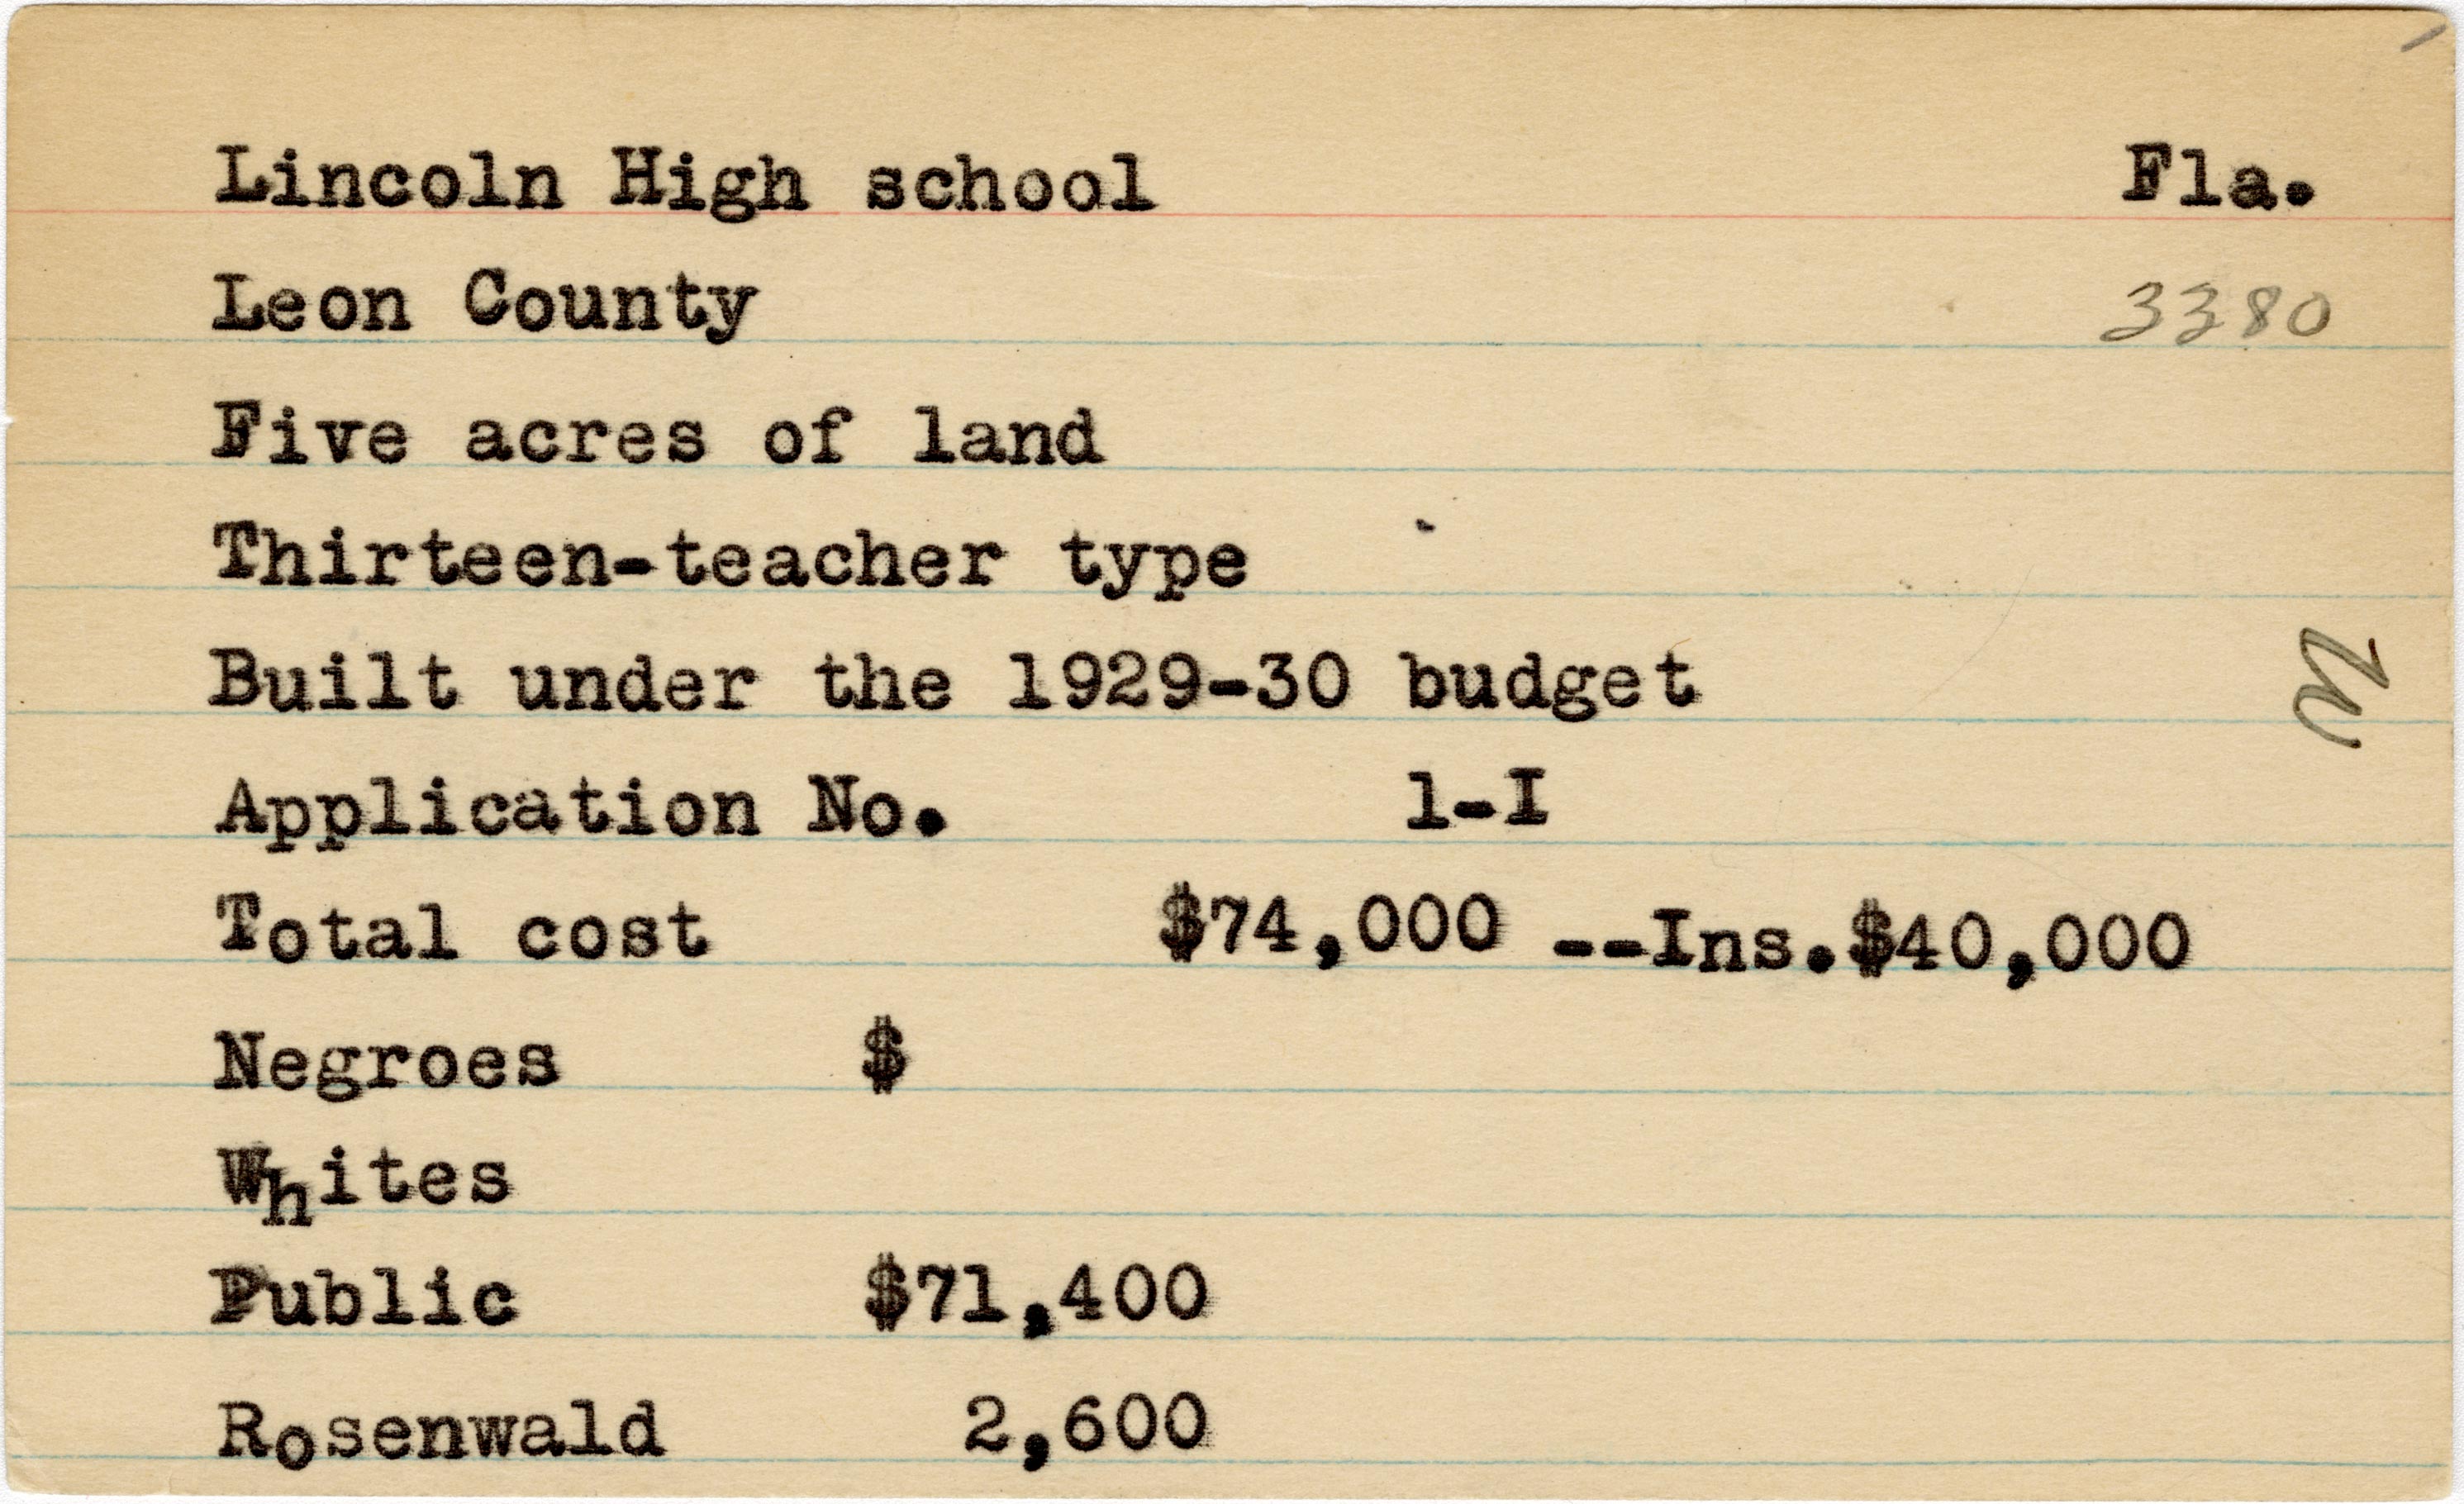 Lincoln High school Fla.
Leon County 3380
Five acres of land
Thirteen-teacher type
Built under the 1929-30 budget
Application No. 1-I
Total cost $74,000 --Ins.$40,000
Negroes $
Whites
Public $71,400
Rosenwald 2,600